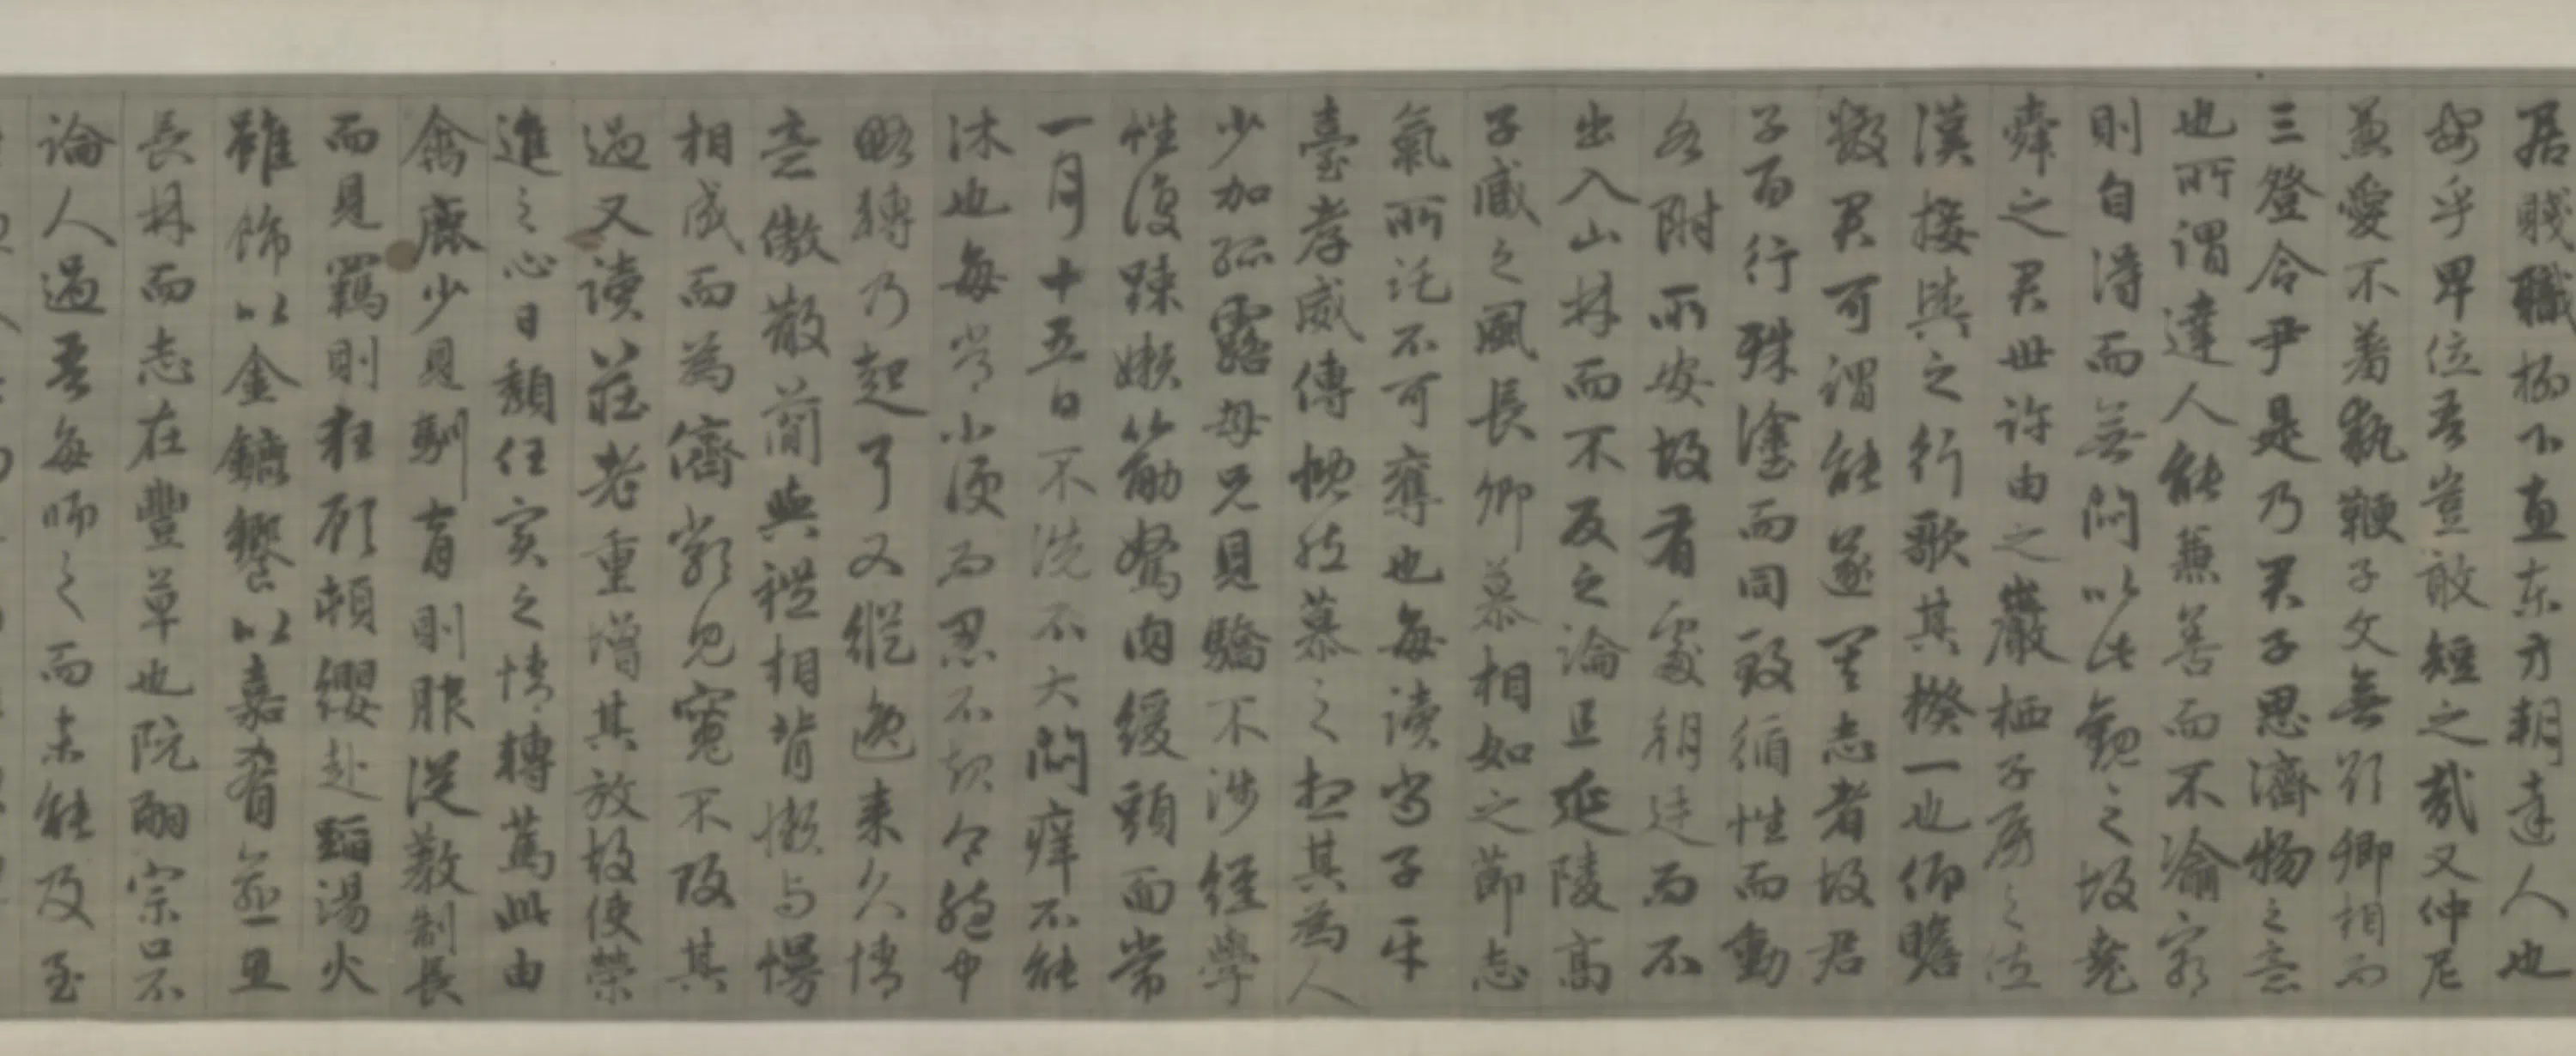 居賤職柳下惠東方朔達人也
安乎卑位吾豈敢短之哉又仲尼
兼愛不羞執鞭子文無欲卿相而
三登令尹是乃君子思濟物之意
也所謂達人能兼善而不渝窮
則自得而無悶以此觀之故堯
舜之君世許由之巖栖子房之佐
漢接輿之行歌其揆一也仰瞻
數君可謂能遂其志者故君
子百行殊塗而同致循性而動
各附所安故有處朝廷而不
出入山林而不反之論且延陵高
子臧之風長卿慕相如之節志
氣所託不可奪也每讀尚子平
臺孝威傳慨然慕之想其為人
少加孤露母兄見驕不涉經學
性復疎嬾筋駑肉緩頭面常
一月十五日不洗不大悶痒不能
沐也每常小便而忍不起令胞中
略轉乃起耳又縱逸来久情
意傲散簡與禮相背懶与慢
相成而為儕類見寬不攻其
過又讀莊老重增其放故使榮
進之心日頹任實之情轉篤此由
禽鹿少見馴育則服從教制長
而見羈則狂顧頓纓赴蹈湯火
雖飾以金鑣饗以嘉肴逾思
長林而志在豐草也阮嗣宗口不
論人過吾每師之而未能及至